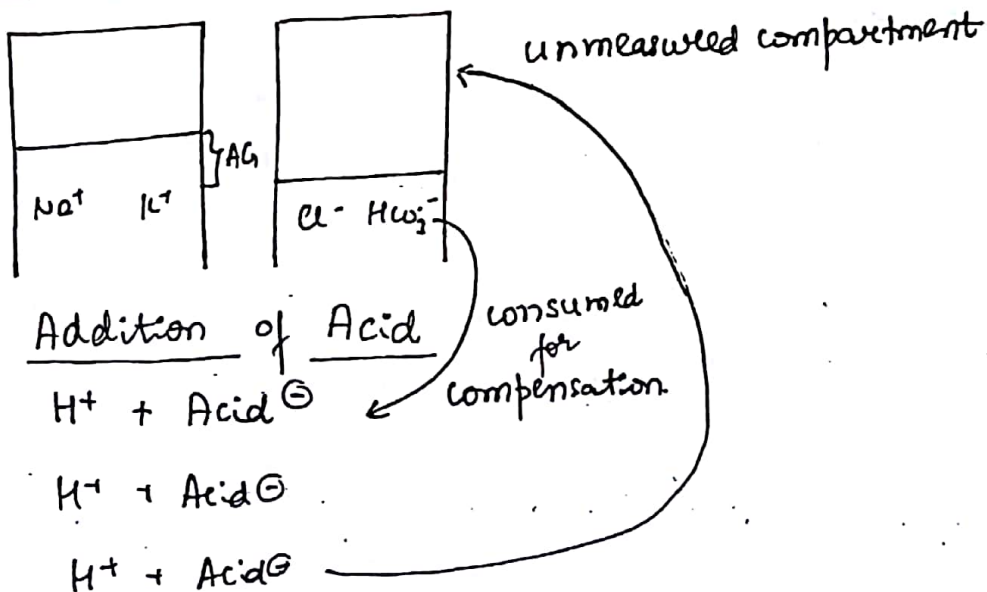 unmeasured compartment
AG
Na⁺ K⁺
Cl⁻ HCO₃⁻
Addition of Acid
consumed
for
compensation.
H⁺ + Acid⊖
H⁺ + Acid⊖
H⁺ + Acid⊖